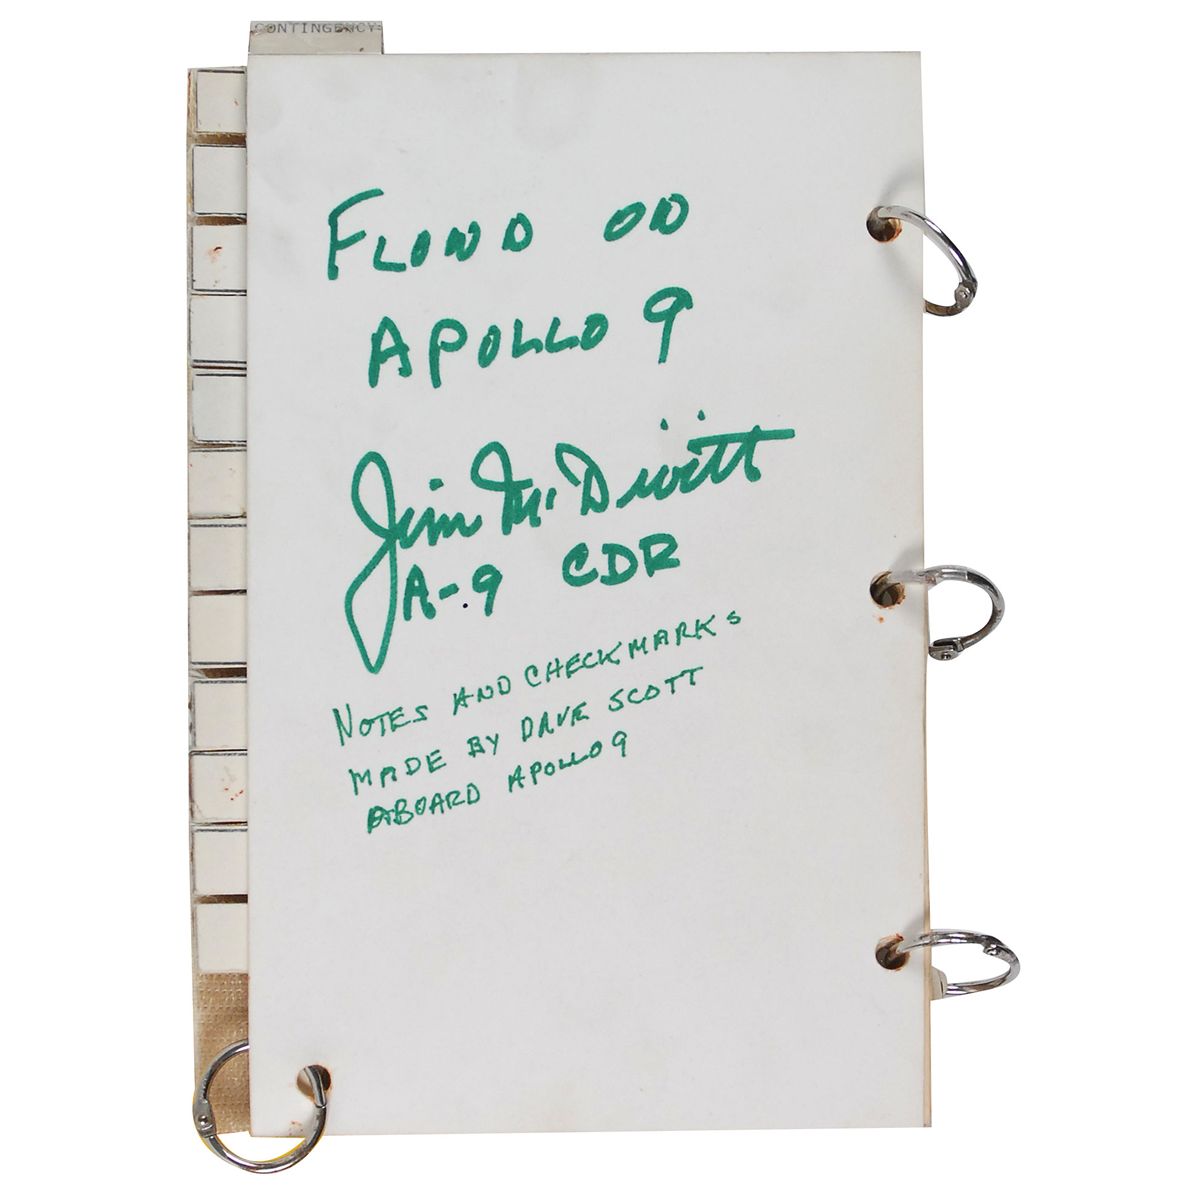 CONTINGENCY
FLOWN ON
APOLLO 9
Jim McDivitt
A-9 CDR
NOTES AND CHECKMARKS
MADE BY DAVE SCOTT
ABOARD APOLLO 9